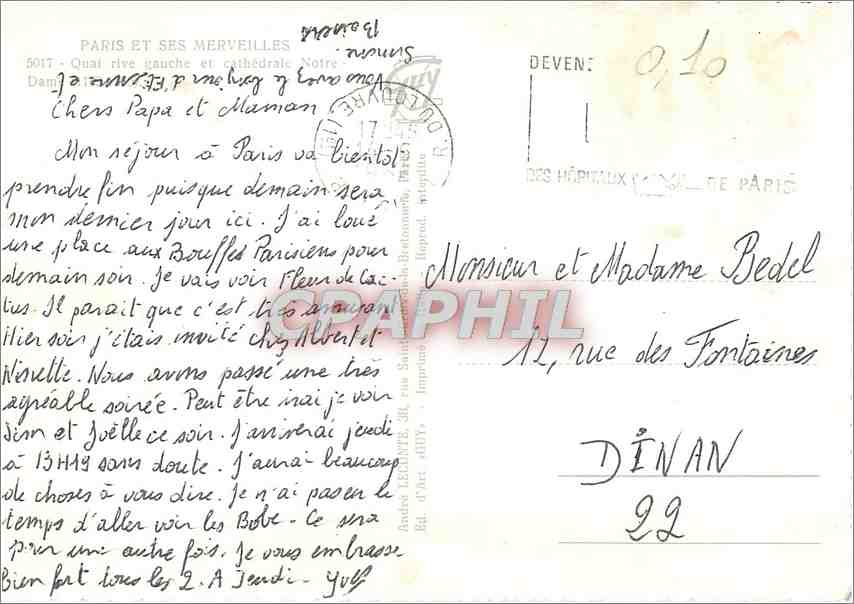 PARIS ET SES MERVEILLES
5017 - Quai rive gauche et cathédrale Notre-
Dame
Vous avez le bonjour d'Etienne et
Simone
Baisers
Chers Papa et Maman
Mon séjour à Paris va bientôt
prendre fin puisque demain sera
mon dernier jour ici. J'ai loué
une place aux Bouffes Parisiens pour
demain soir. Je vais voir Fleur de Cac-
tus. Il parait que c'est très amusant
Hier soir j'étais invité chez Albert et
Ninette. Nous avons passé une très
agréable soirée. Peut être irai je voir
Jim et Joëlle ce soir. J'arriverai jeudi
à 13H19 sans doute. J'aurai beaucoup
de choses à vous dire. Je n'ai pas eu le
temps d'aller voir les Bobe. Ce sera
pour une autre fois. Je vous embrasse
bien fort tous les 2. A Jeudi - Yves
André LECONTE, 38, rue Sainte-Croix-de-la-Bretonnerie, Paris
Ed. d'Art «GUY» - Imprimé Reprod. interdite
GUY
R. DU LOUVRE (1er)
17
DEVENEZ
DES HÔPITAUX DE PARIS
0,10
Monsieur et Madame Bedel
12, rue des Fontaines
DINAN
22
CPAPHIL